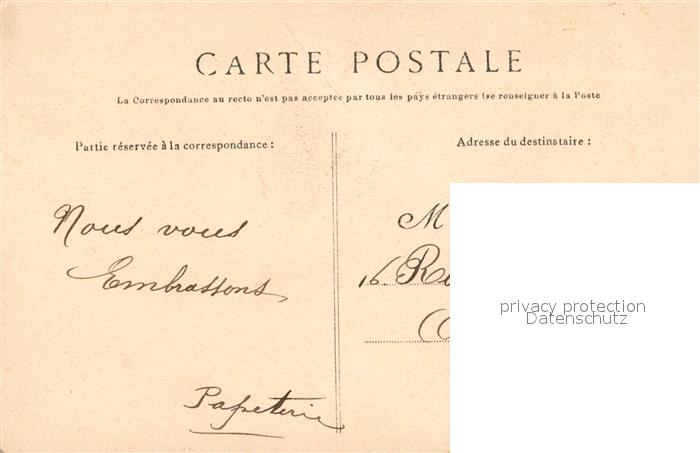 CARTE POSTALE
La Correspondance au recto n'est pas acceptée par tous les pays étrangers (se renseigner à la Poste
Partie réservée à la correspondance :
Adresse du destinataire :
Nous vous
Embrassons
Papeterie
M
16. R
privacy protection
Datenschutz